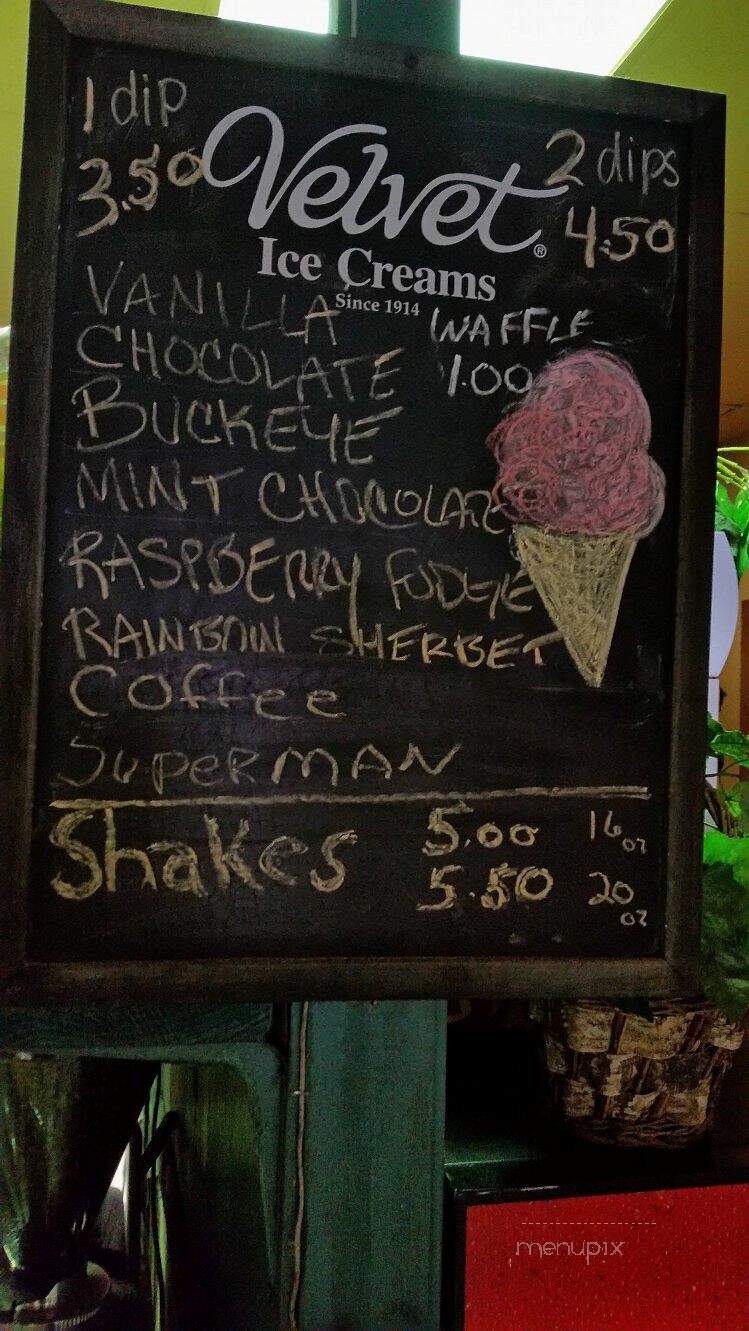 1 dip
3.50
Velvet®
2 dips
4.50
Ice Creams
Since 1914
VANILLA
WAFFLE
1.00
CHOCOLATE
BUCKEYE
MINT CHOCOLATE
RASPBERRY FUDGE
RAINBOW SHERBET
Coffee
SUPeRMAN
Shakes 5.00 16 oz
5.50 20 oz
menupix